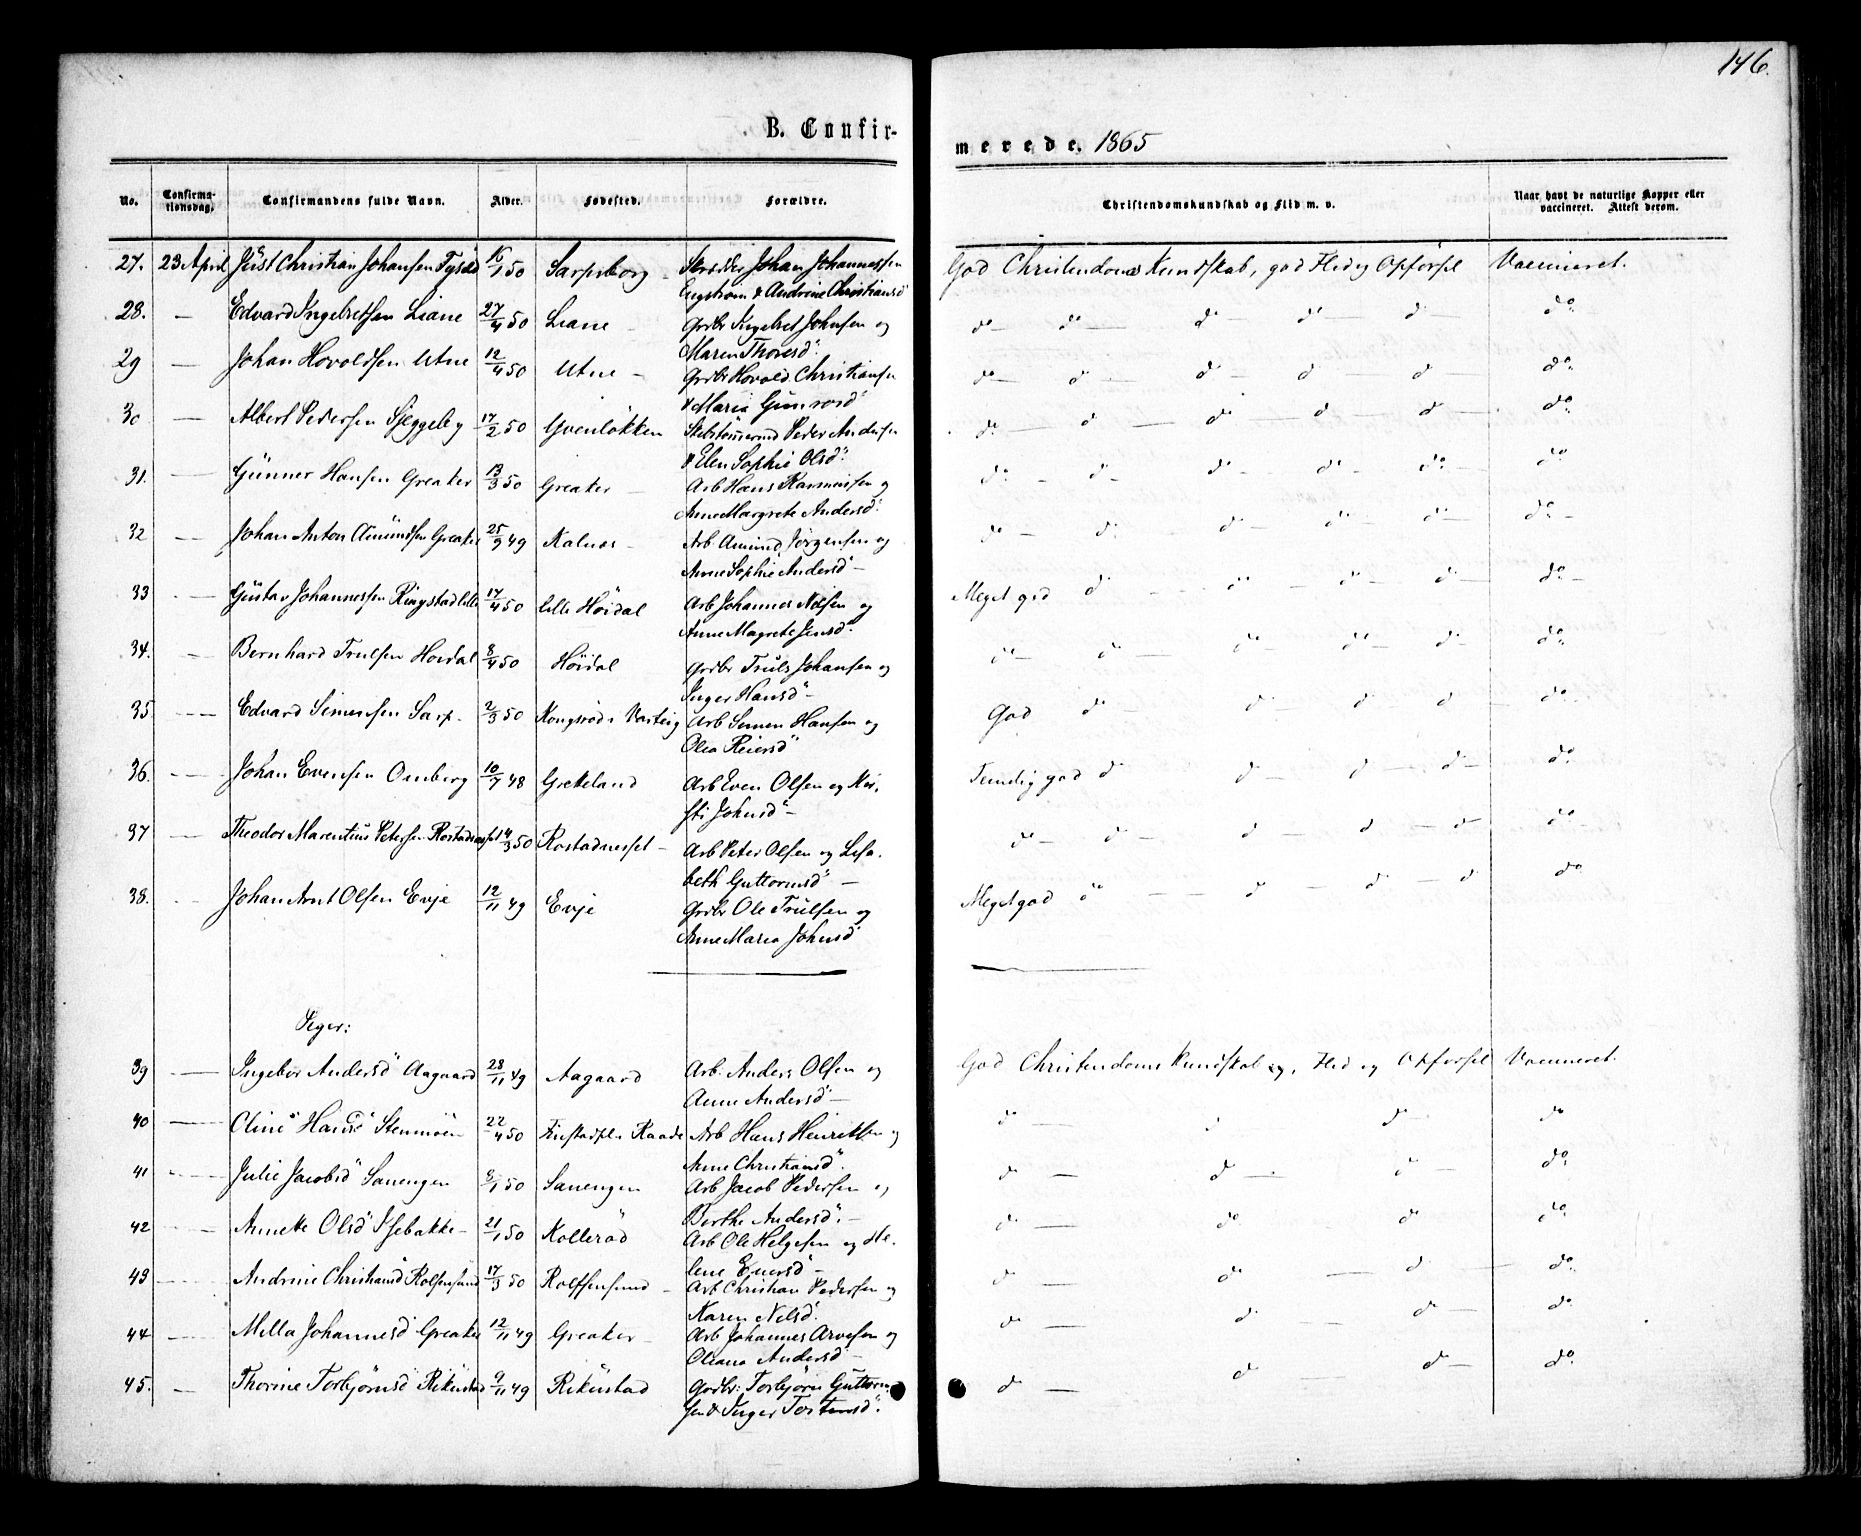 146.
B. Confirmerede. 1865
No. Confirmationsdag. Confirmandens fulde Navn. Alder. Fødested. Forældre. Christendomskundskab og Flid m. v. Naar havt de naturlige Kopper eller vaccineret. Attest derom.
27. 23 April Just Christian Johansen 16/1 50 Sarpsborg Skrædder Johan Johannessen God Christendoms Kundskab, god Flid og Opførsel Vaccineret.
Engstrøm & Andrine Christiansd
28. — Edvard Ingebretsen Liane 27/4 50 Liane Grdbr Ingebret Johnsen og do do do do do do
Maren Thoresd
29 — Johan Hovoldsen Utne 12/4 50 Utne Grdbr Hovold Christiansen do d d d d do
& Maria
30 — Albert Pedersen 17/2 50 Gvenløkken Peder Andersen do d do d do do
& Elen Sophie Olsd
31. — Gunner Hansen Greaker 13/3 50 Greaker Arb Hans Rasmussen og do d do do do do
Anne Margrete Andersd
32 — Johan Anton Amundsen Greaker 25/9 49 Kalnes Arb Amund Jørgensen og do d d do do do
Anne Sophie Andersd
33 — Gustav Johannessen Ringstad lille 17/4 50 lille Høidal Arb Johannes Nelsen og Meget god d do d d do
Anne Magrete Jensd
34. — Bernhard Trulsen Høidal 8/4 50 Høidal Grdbr Truls Johansen og do do do do d do
Inger Hansd
35 — Edvard Simensen Sarp 2/3 50 Kongsrød i Varteig Arb Simen Hansen og God do d d d do
Olea Reiersd
36. — Johan Evensen Omberg 10/7 48 Grekeland Arb Even Olsen og Kir- Temlig god d d d d do
sti Johnsd
37 — Theodor Marentius Petersen Rostadnesset 14/3 50 Rostadnesset Arb Peter Olsen og Lisa- do d d d d do
beth Guttormsd
38. — Johan Arnt Olsen Evje 12/11 49 Evje Grdbr Ole Trulsen og Meget god do d d d do
Anne Maria Johnsd
Piger:
39 — Ingebor Andersd Aagaard 28/11 49 Aagaard Arb. Anders Olsen og God Christendoms Kundskab, Flid og Opførsel Vaccineret.
Anne Andersd
40 — Oline Hansd Stenmoen 22/4 50 Raade Arb Hans Henriksen og d d do
Anne Christiansd
41 — Julie Jacobsd Sanengen 8/1 50 Sanengen Arb Jacob Pedersen og d d d do
Berthe Andersd
42 — Annette Olsd Isebakke 21/1 50 Kollerød Arb Ole Helgesen og He- d do do do
lene Enersd
43 — Andrine Christiansd Rolfsensund 17/3 50 Rolffsensund Arb Christian Pedersen og d do d do
Karen Nelsd
44 — Milla Johannesd Greaker 12/11 49 Greaker Arb Johannes Arvesen og d d d do
Oliana Andersd
45. — Thorine Torbjørnsd Rikustad 9/11 49 Rikustad Grdbr: Torbjørn Guttorm- d d d do
sen & Inger Torstensd